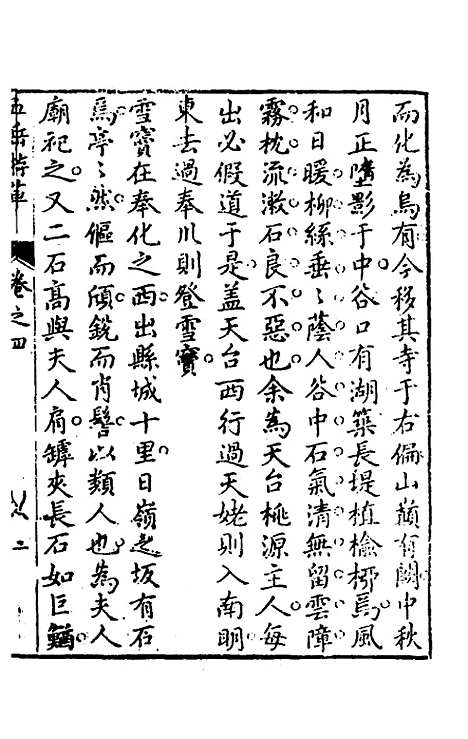 而化為烏有今移其寺于右偏山巔有闕中秋
月正墮影于中谷口有湖築長堤植榆桺焉風
和日暖柳絲垂〻蔭人谷中石氣清無留雲障
霧枕流漱石良不惡也余為天台桃源主人每
出必假道于是盖天台西行過天姥則入南明
東去過奉川則登雪竇
雪竇在奉化之西出縣城十里日嶺之坂有石
焉亭〻然傴而頎銳而肖髻以類人也為夫人
廟祀之又二石高與夫人肩罅夾長石如巨
五岳游草
卷之四
二